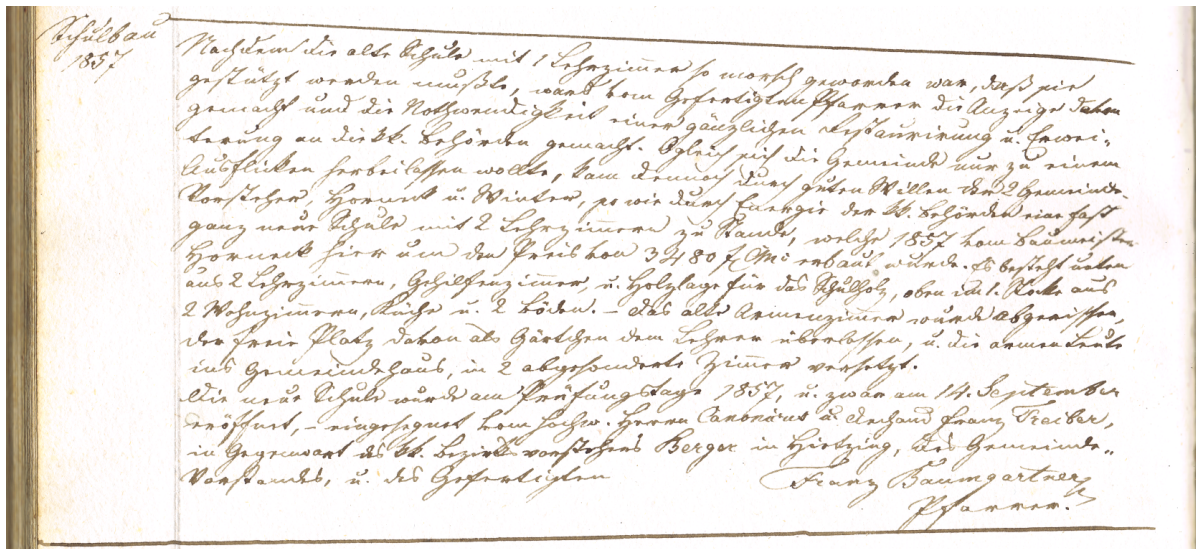 Schulbau
1857
Nachdem die alte Schule mit 1 Lehrzimmer so morsch geworden war, daß sie
gestützt werden mußte, ward vom Gefertigten Pfarrer die Anzeige davon
gemacht und die Nothwendigkeit einer gänzlichen Restaurirung u. Erwei-
terung an die kk. Behörden gemacht. Obgleich sich die Gemeinde nur zu einem
Ausflicken herbeilassen wollte, kam dennoch durch guten Willen der 2 Gemeinde
Vorsteher Horneck u. Winter, so wie durch Energie der kk. Behörden eine fast
ganz neue Schule mit 2 Lehrzimmern zu Stande, welche 1857 vom Baumeister
Horneck hier um den Preis von 3480 f CMz erbaut wurde. Es besteht unten
aus 2 Lehrzimmern, Gehilfenzimmer, u. Holzlage für das Schulholz, oben im 1. Stocke aus
2 Wohnzimmern, Küche u. 2 Böden. – Das alte Armenzimmer wurde abgerissen,
der freie Platz davon als Gärtchen dem Lehrer überlassen, u. die armen Leute
ins Gemeindehaus, in 2 abgesonderte Zimmer versetzt.
Die neue Schule wurde am Prüfungstage 1857, u. zwar am 14. September
eröffnet, – eingesegnet vom hochw. Herrn u. Dechand Franz Treiber,
in Gegenwart des kk. Bezirksvorstehers Berger in Hietzing, des Gemeinde-
Vorstandes, u. des Gefertigten
Franz Baumgartner
Pfarrer.